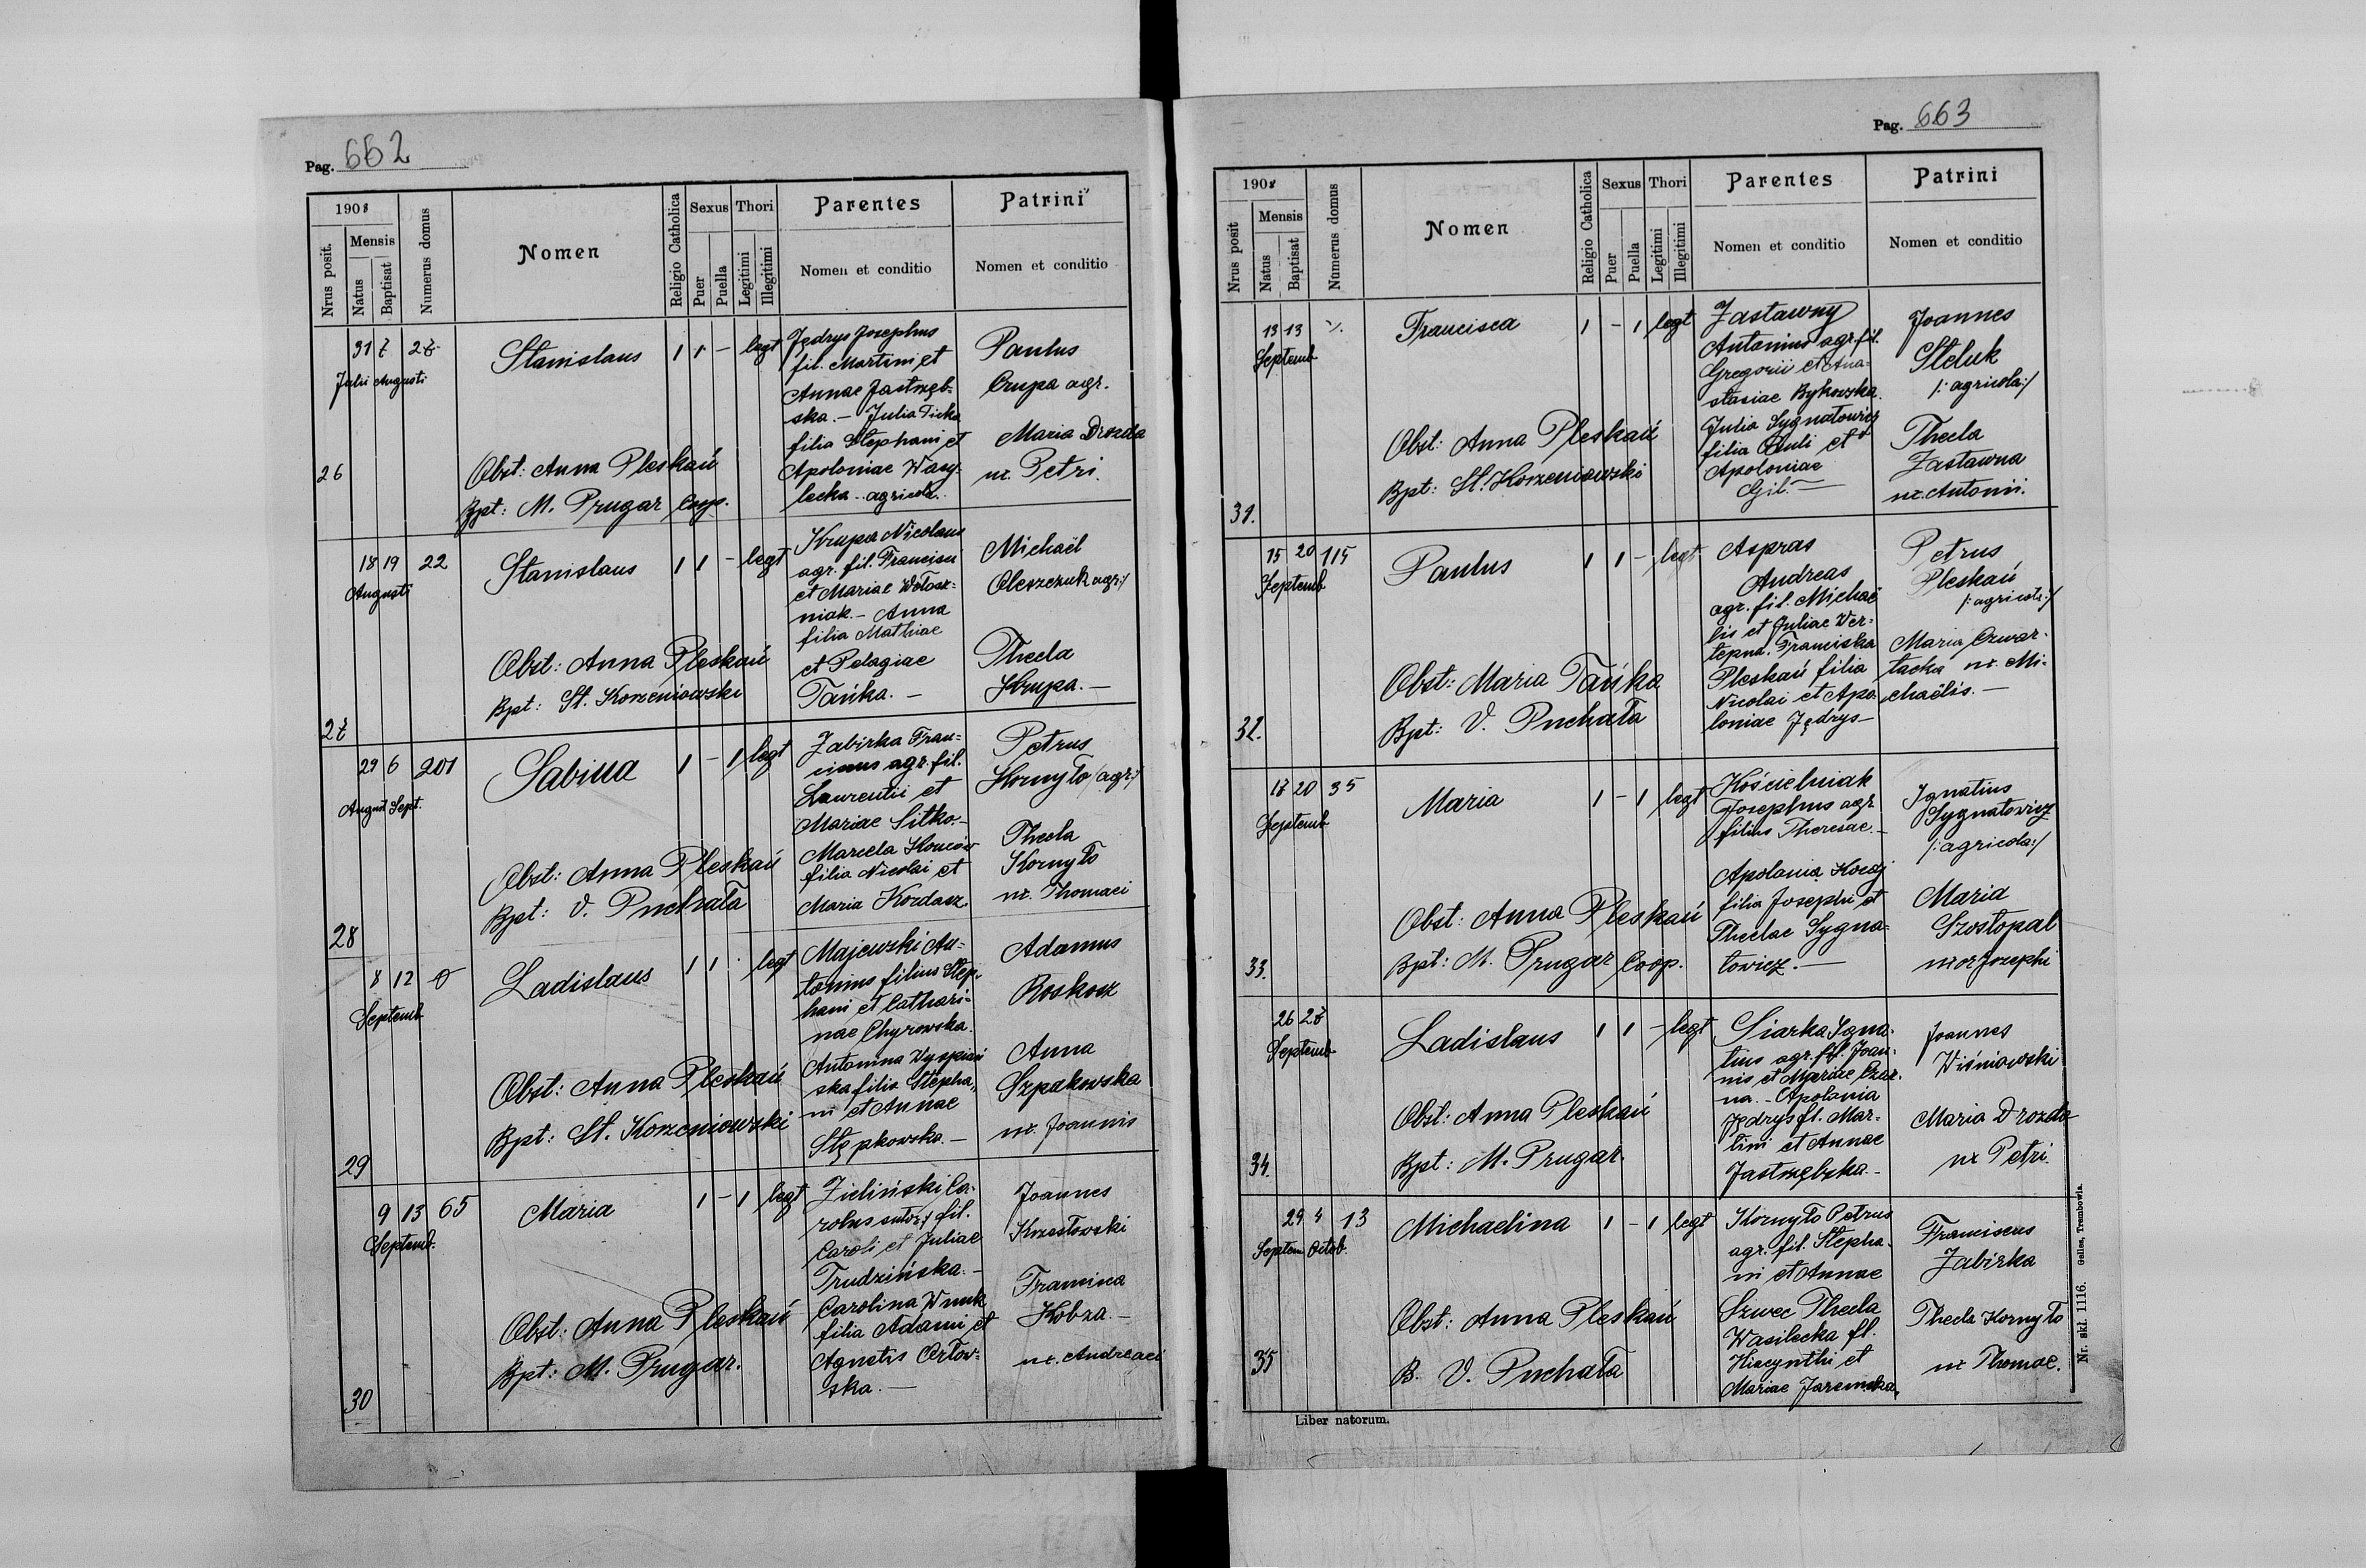 Pag. 662
1908
Nrus posit.
Mensis
Natus
Baptisat
Numerus domus
Nomen
Religio Catholica
Sexus
Puer
Puella
Thori
Legitimi
Illegitimi
Parentes
Nomen et conditio
Patrini
Nomen et conditio
26
31 7 27
Julii Augusti
Stanislaus
1 1 - legt
Obst: Anna Pleskań
Bpt: M. Prugar Coop.
Jędrys Josephus
fil. Martini et
Annae Jastrzęb-
ska. - Julia
filia Stephani et
Apoloniae Wasy-
lecka. agricola.
Paulus
Crupa agr.
Maria Drozda
ux. Petri.
27
18 19 22
Augusti
Stanislaus
1 1 - legt
Obst: Anna Pleskań
Bpt: St. Korzeniowski
Krupa Nicolaus
agr. fil. Francisci
et Mariae Wołosz-
niak. - Anna
filia Mathiae
et Pelagiae
Tańka. -
Michaël
Oleszczuk agr:/
Thecla
Krupa. -
28
29 6 201
August Sept.
Sabina
1 - 1 legt
Obst: Anna Pleskań
Bpt: V. Puchała
Zabirka Fran-
ciscus agr. fil.
Laurentii et
Mariae Sitko. -
Marcela
filia Nicolai et
Maria Kordasz.
Petrus
Kornyło /agr:/
Thecla
Kornyło
ux. Thomaei
29
8 12 0
Septemb
Ladislaus
1 1 · legt
Obst: Anna Pleskań
Bpt: St. Korzeniowski
Majewski An-
tonius filius Step-
hani et Cathari-
nae Chyrowska.
Antonina Wyspiań
ska filia Stepha-
ni et Annae
Stępkowska. -
Adamus
Roskosz
Anna
Szpakowska
ux. Joannis
30
9 13 65
Septemb.
Maria
1 - 1 legt
Obst: Anna Pleskań
Bpt: M. Prugar.
Zieliński Ca-
rolus sutor:/ fil.
Caroli et Juliae
Trudzińska. -
Carolina Wnuk
filia Adami et
Agnetis Orłow-
ska. -
Joannes
Krzesłowski
Francisca
Kobza. -
ux. Andreaei
Pag. 663
1908
Nrus posit
Mensis
Natus
Baptisat
Numerus domus
Nomen
Religio Catholica
Sexus
Puer
Puella
Thori
Legitimi
Illegitimi
Parentes
Nomen et conditio
Patrini
Nomen et conditio
31.
13 13 %
Septemb
Francisca
1 - 1 legt
Obst: Anna Pleskań
Bpt: St. Korzeniowski
Zastawny
Antonius agr. fil.
Gregorii et Ana-
stasiae Bykowska.
Julia Sygnatowicz
filia Pauli et
Apoloniae
Gil. -
Joannes
Steluk
/: agricola:/
Thecla
Zastawna
ux. Antonii.
32.
15 20 115
Septemb
Paulus
1 1 - legt
Obst: Maria Tańka
Bpt: V. Puchała
Aspras
Andreas
agr. fil. Michaë
lis et Juliae Wer-
tepna. Franciska
Pleskań filia
Nicolai et Apo-
loniae Jędrys -
Petrus
Pleskań
/: agricola:/
Maria Czwar-
tacka ux. Mi-
chaëlis. -
33.
17 20 35
Septemb
Maria
1 - 1 legt
Obst: Anna Pleskań
Bpt: M. Prugar Coop.
Kościelniak
Josephus agr
filius Theresae. -
Apolonia Koczój
filia Josephi et
Theclae Sygna-
towicz. -
Ignatius
Sygnatowicz
/: agricola:/
Maria
Szostopal
uxor Josephi
34.
26 27
Septemb
Ladislaus
1 1 - legt
Obst: Anna Pleskań
Bpt: M. Prugar.
Siarka Igna-
tius agr. fil. Joan-
nis et Mariae Czar-
na. - Apolonia
Jędrys fl. Mar-
tini et Annae
Jastrzębska. -
Joannes
Wiśniowski
Maria Drozda
ux Petri.
35
29 4 13
Septem Octob.
Michaelina
1 - 1 legt
Obst: Anna Pleskań
B. V. Puchała
Kornyło Petrus
agr. fil. Stepha-
ni et Annae
Szwec Thecla
Wasilecka fl.
Hiacynthi et
Mariae Jaremska.
Franciscus
Zabirka
Thecla Kornyło
ux Thomae.
Liber natorum.
Nr. skł. 1116. Gelles, Trembowla.